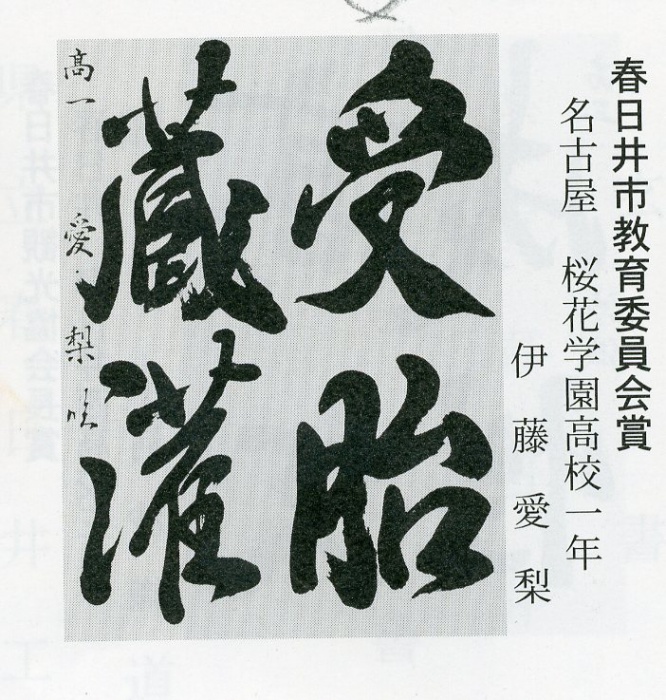 春日井市教育委員会賞
名古屋 桜花学園高校一年
伊藤愛梨
受胎
蔵灌
高一 愛梨